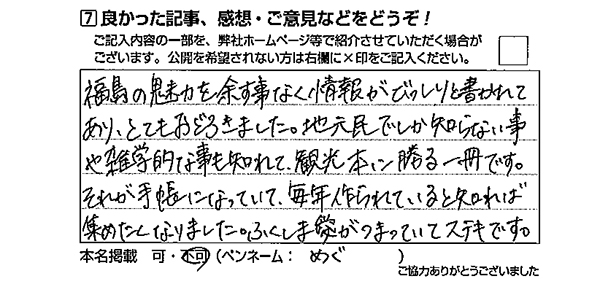 7 良かった記事、感想・ご意見などをどうぞ！
ご記入内容の一部を、弊社ホームページ等で紹介させていただく場合が
ございます。公開を希望されない方は右欄に×印をご記入ください。
福島の魅力を余す事なく、情報がびっしりと書かれて
あり、とてもおどろきました。地元民でしか知らない事
や雑学的な事も知れて、観光本に勝る一冊です。
それが手帳になっていて、毎年作られていると知れば
集めたくなりました。ふくしま愛がつまっていてステキです。
本名掲載 可・不可 (ペンネーム： めぐ )
ご協力ありがとうございました